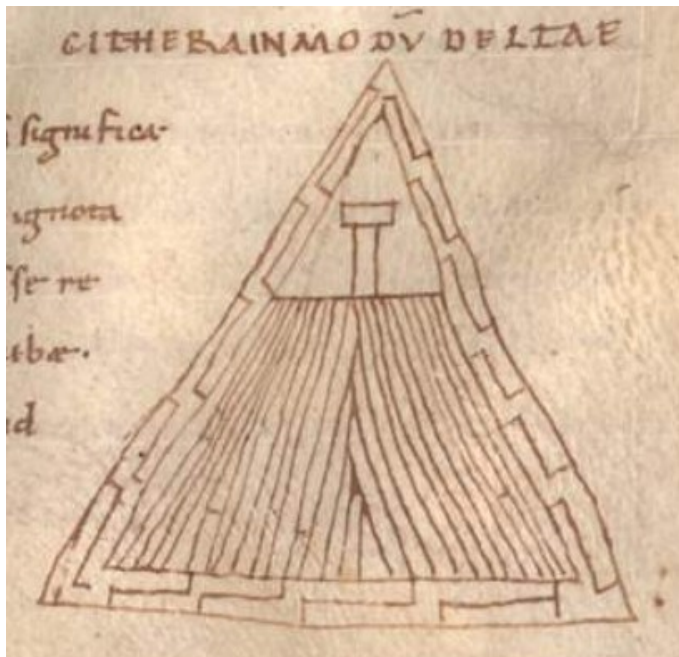 CITHERA IN MODŪ DELTAE
significa
ignota
sse re
tbæ.
d